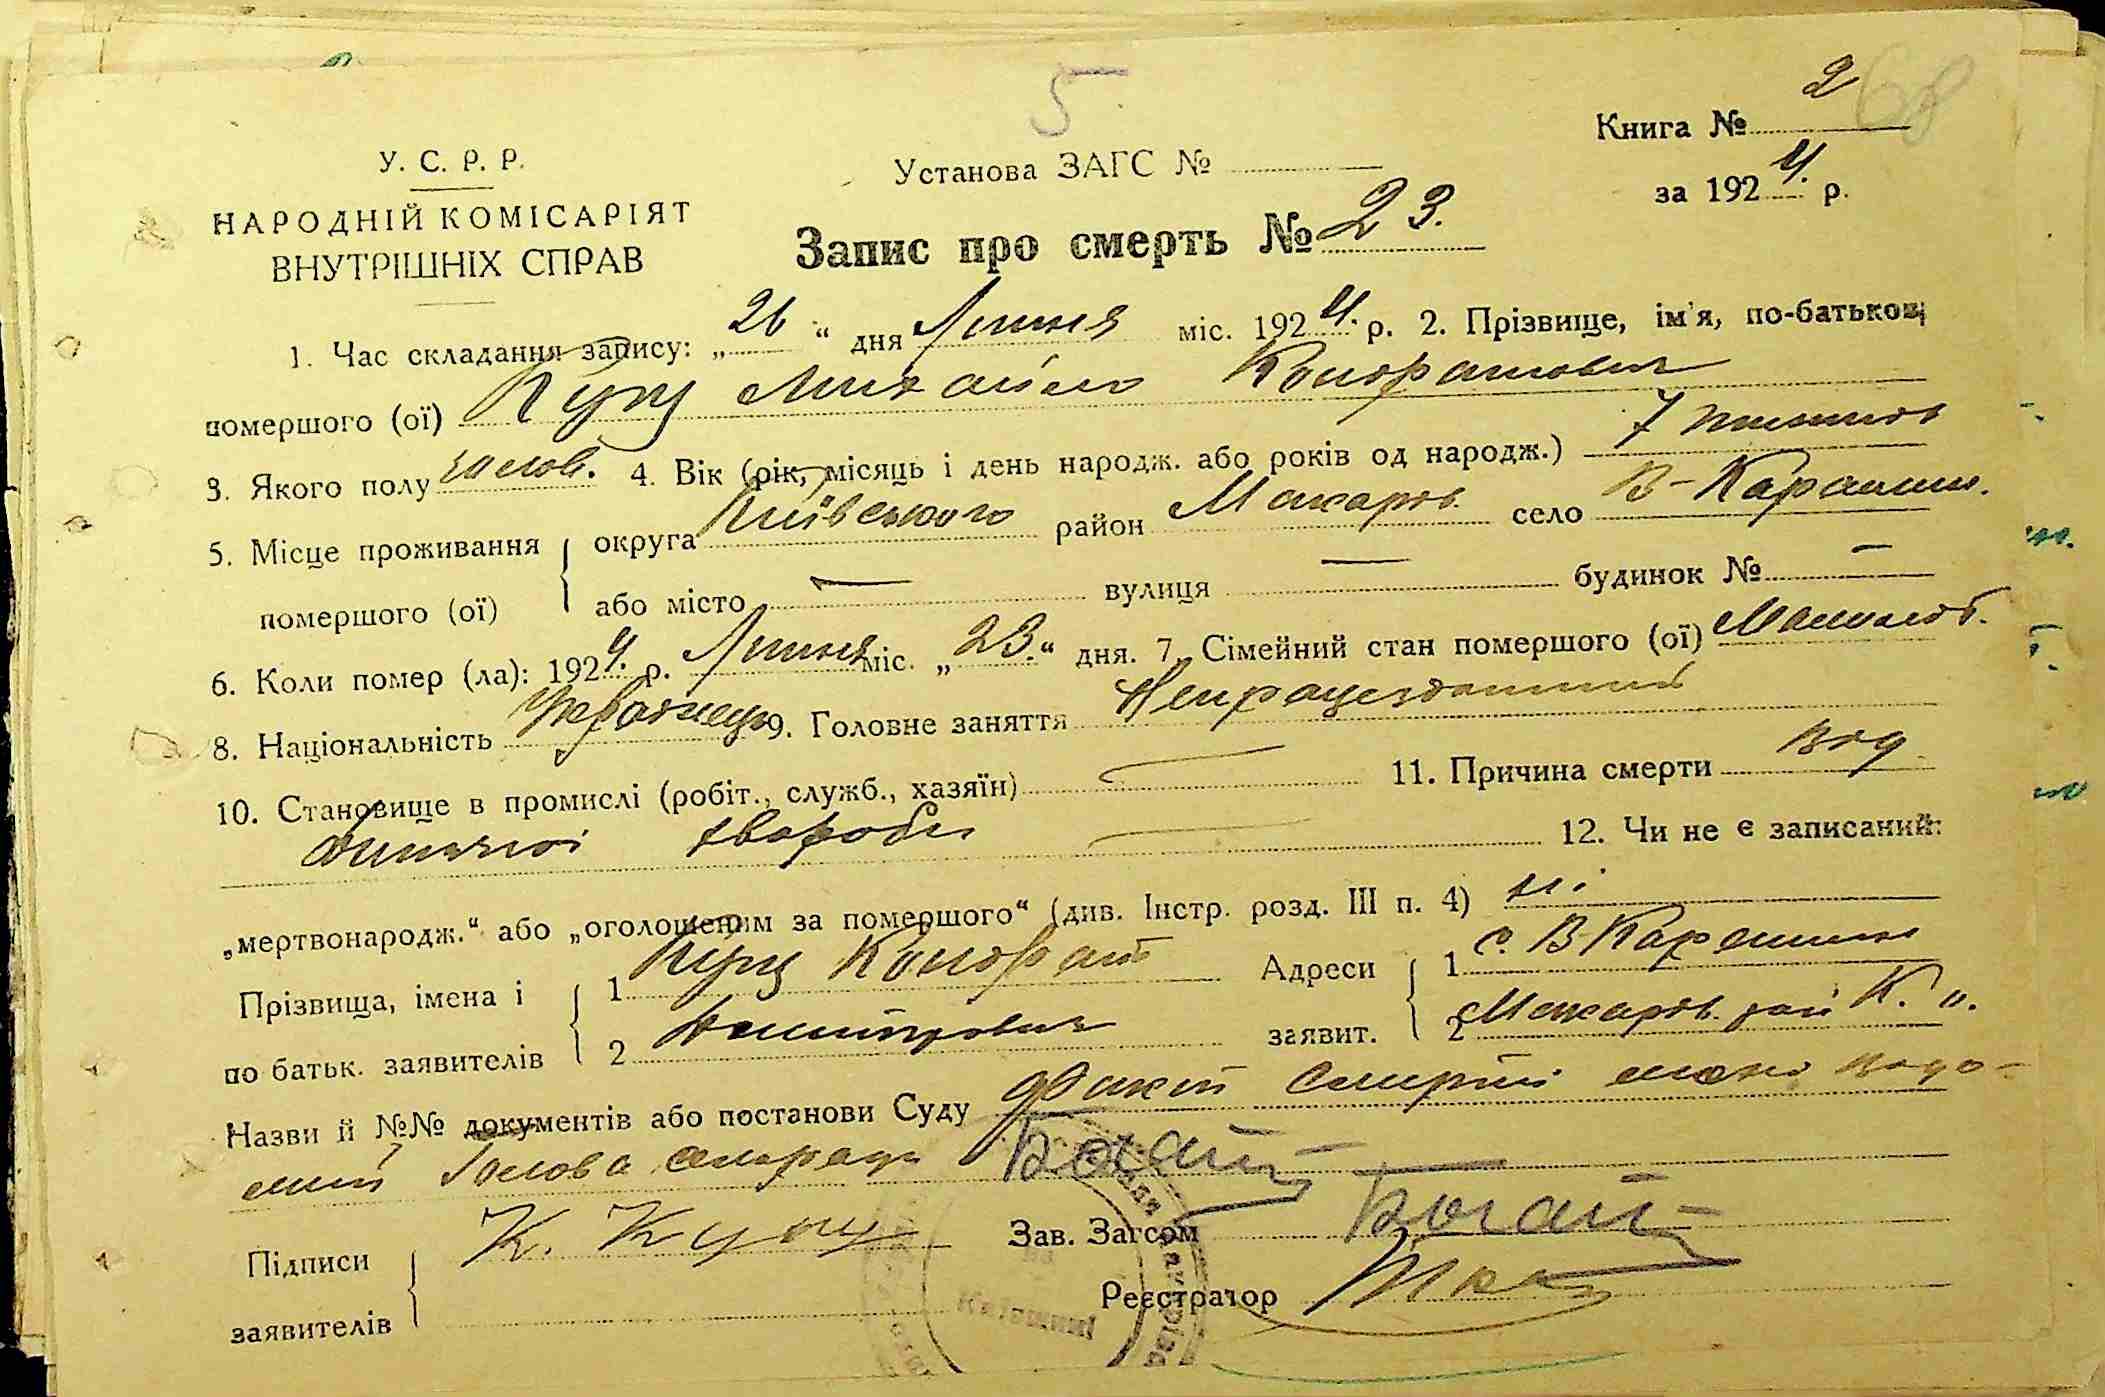 5
Книга № 2 68
У. С. Р. Р.
Установа ЗАГС №
за 1924. р.
НАРОДНІЙ КОМІСАРІЯТ
ВНУТРІШНІХ СПРАВ
Запис про смерть № 23.
1. Час складання запису: „ 26 “ дня Липня міс. 1924. р. 2. Прізвище, ім'я, по-батькові
помершого (ої) Куц Михайло Кондратович
3. Якого полу чолов. 4. Вік (рік, місяць і день народж. або років од народж.) 7
5. Місце проживання округа Київського район Макарів. село В-Карашин.
помершого (ої) або місто — вулиця — будинок № —
6. Коли помер (ла): 1924. р. Липня міс. „ 23. “ дня. 7. Сімейний стан помершого (ої)
8. Національність Українець 9. Головне заняття Непрацездатний
10. Становище в промислі (робіт., служб., хазяїн) — 11. Причина смерти від
хвороби — 12. Чи не є записаний:
„мертвонародж.“ або „оголошеним за помершого“ (див. Інстр. розд. III п. 4) ні
Прізвища, імена і 1 Куц Кондрат Адреси 1 с. В-Карашин
по батьк. заявителів 2 Дмитрович заявит. 2 Макарів. рай К. о.
Назви й №№ документів або постанови Суду Факт смерті мені відо-
мий Голова сільради Богат
Підписи К. Куц Зав. Загсом Богат
заявителів Реєстратор